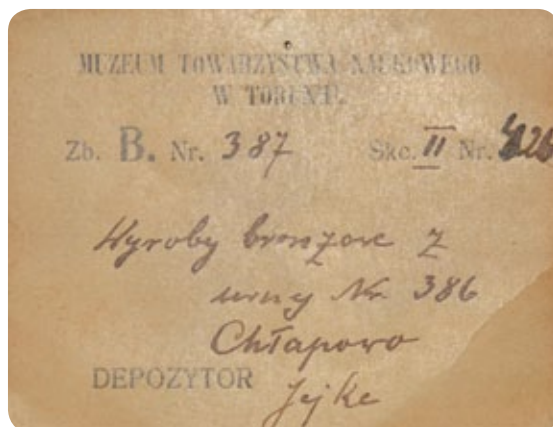 MUZEUM TOWARZYSTWA NAUKOWEGO
W TORUNIU.
Zb. B. Nr. 387 Skc. II Nr.
Wyroby bronzowe z
urny Nr. 386
Chłapowo
DEPOZYTOR Jejke